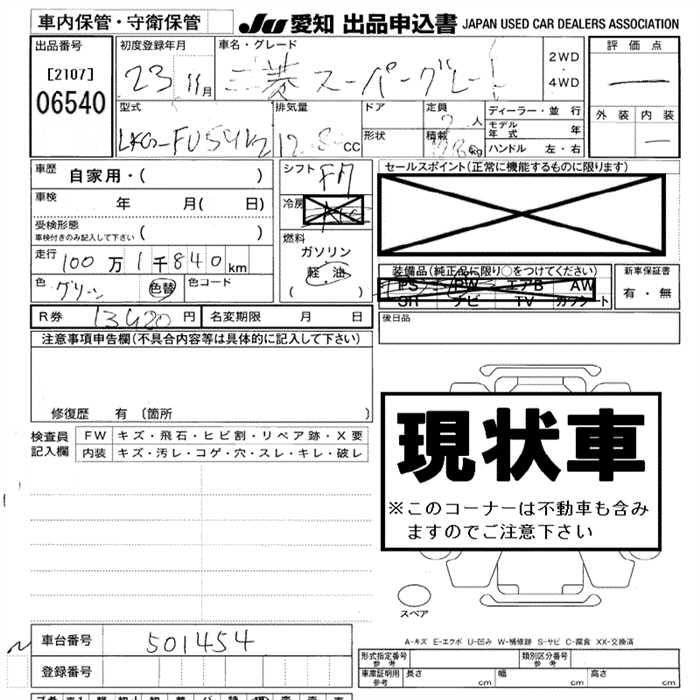 車内保管・守衛保管 JU 愛知 出品申込書 JAPAN USED CAR DEALERS ASSOCIATION
出品番号 初度登録年月 車名・グレード 2WD ・ 4WD 評価点
[2107] 23 11月 三菱 スーパーグレート
06540
型式 排気量 ドア 定員 人 ディーラー・並行 外装 内装
cc 形状 積載 kg モデル年式 年
ハンドル 左・右
車歴 自家用・( ) シフト FM セールスポイント(正常に機能するものに限ります)
車検 年 月( 日) 冷房
受検形態 燃料
車検付きのみ記入して下さい ( ) ガソリン
走行 100万1千840km 軽油
装備品(純正品に限り○をつけてください) 新車保証書
色 グリーン 色替 色コード ( ) PS PW エアB AW 有・無
SH ナビ TV カワシート
R券 13420円 名変期限 月 日 後日品
注意事項申告欄(不具合内容等は具体的に記入して下さい)
修復歴 有 〔箇所 〕
検査員 FW キズ・飛石・ヒビ割・リペア跡・X要
記入欄 内装 キズ・汚レ・コゲ・穴・スレ・キレ・破レ
現状車
※このコーナーは不動車も含み
ますのでご注意下さい
スペア
A-キズ E-エクボ U-凹み W-補修跡 S-サビ C-腐食 XX-交換済
車台番号 501454
形式指定番号 参考 類別区分番号 参考
登録番号 車庫証明用 参考 長さ cm 幅 cm 高さ cm